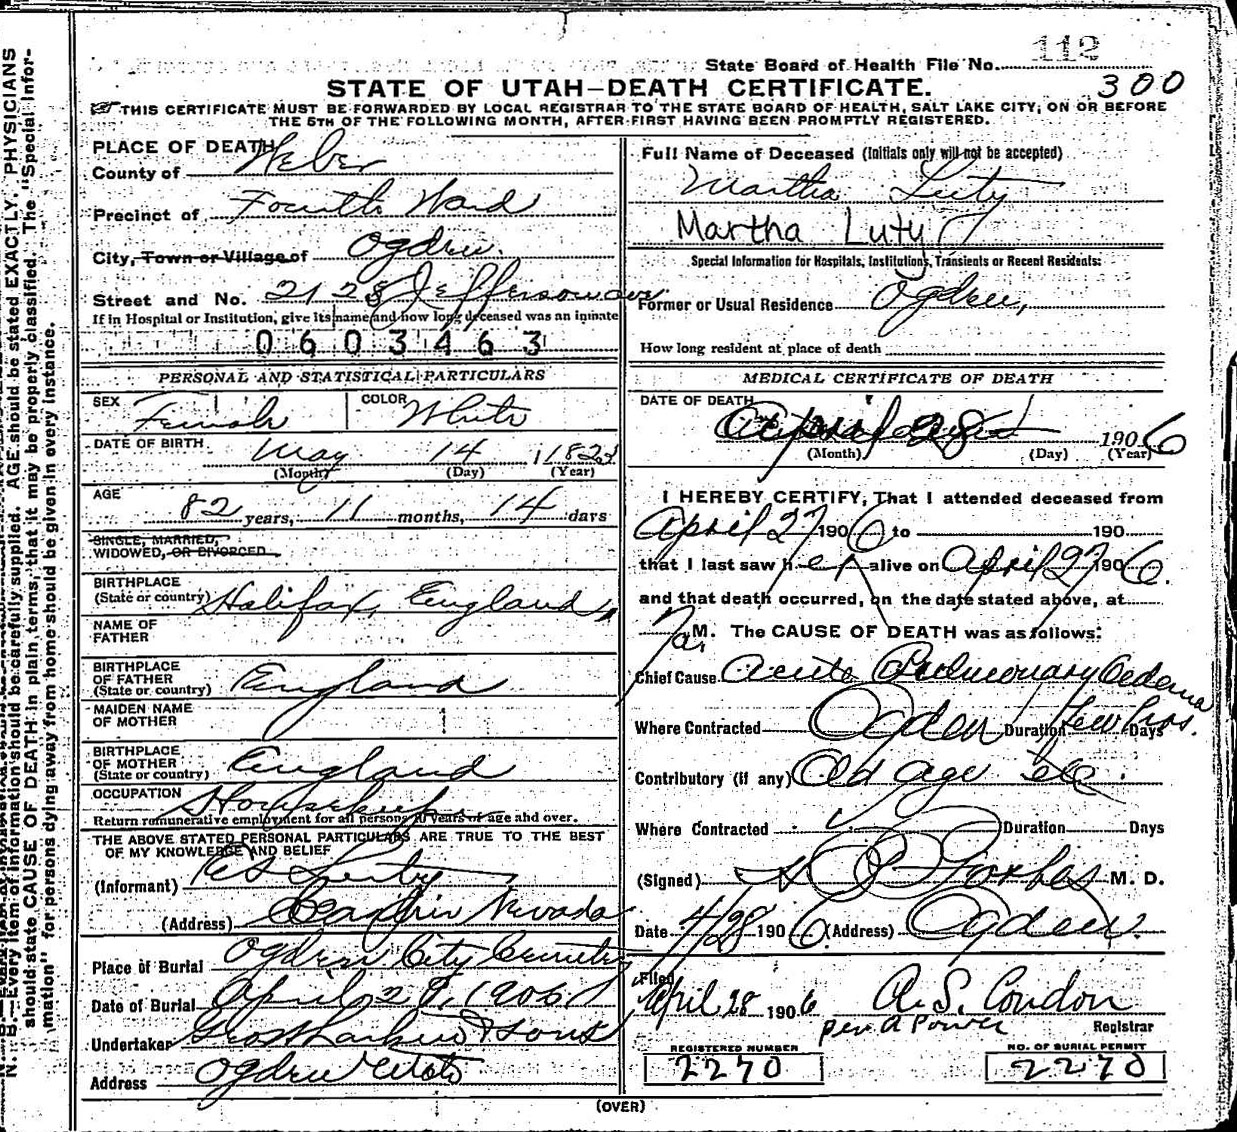 112
State Board of Health File No.
300
STATE OF UTAH—DEATH CERTIFICATE.
THIS CERTIFICATE MUST BE FORWARDED BY LOCAL REGISTRAR TO THE STATE BOARD OF HEALTH, SALT LAKE CITY, ON OR BEFORE
THE 5TH OF THE FOLLOWING MONTH, AFTER FIRST HAVING BEEN PROMPTLY REGISTERED.
PLACE OF DEATH
County of Weber
Precinct of Fourth Ward
City, Town or Village of Ogden
Street and No. 2128 Jefferson ave
If in Hospital or Institution, give its name and how long deceased was an inmate
0603463
PERSONAL AND STATISTICAL PARTICULARS
SEX Female COLOR White
DATE OF BIRTH May 14 1823
(Month) (Day) (Year)
AGE
82 years, 11 months, 14 days
SINGLE, MARRIED,
WIDOWED, OR DIVORCED
BIRTHPLACE
(State or country) Halifax, England
NAME OF
FATHER
BIRTHPLACE
OF FATHER
(State or country) England
MAIDEN NAME
OF MOTHER
BIRTHPLACE
OF MOTHER
(State or country) England
OCCUPATION Housekeeper
Return remunerative employment for all persons 10 years of age and over.
THE ABOVE STATED PERSONAL PARTICULARS ARE TRUE TO THE BEST
OF MY KNOWLEDGE AND BELIEF
(Informant) Luty
(Address) Nevada
Place of Burial Ogden City Cemetry
Date of Burial April 29, 1906
Undertaker Geo Larkin & Sons
Address Ogden Utah
Full Name of Deceased (Initials only will not be accepted)
Martha Luty
Martha Luty
Special Information for Hospitals, Institutions, Transients or Recent Residents:
Former or Usual Residence Ogden,
How long resident at place of death
MEDICAL CERTIFICATE OF DEATH
DATE OF DEATH April 28 1906
(Month) (Day) (Year)
I HEREBY CERTIFY, That I attended deceased from
April 27 1906 to 190
that I last saw her alive on April 27 1906.
and that death occurred, on the date stated above, at
M. The CAUSE OF DEATH was as follows:
Chief Cause Acute Pulmonary Oedema
Where Contracted Ogden Duration few hrs. Days
Contributory (if any) Old age etc.
Where Contracted Duration Days
(Signed) M. D.
Date 4/28 1906 (Address) Ogden.
Filed
April 28 1906 A. S. Condon
per A Power Registrar
REGISTERED NUMBER
2270
NO. OF BURIAL PERMIT
2270
(OVER)
N. B.—Every item of information should be carefully supplied. AGE should be stated EXACTLY. PHYSICIANS
should state CAUSE OF DEATH in plain terms, that it may be properly classified. The "Special Infor-
mation" for persons dying away from home should be given in every instance.